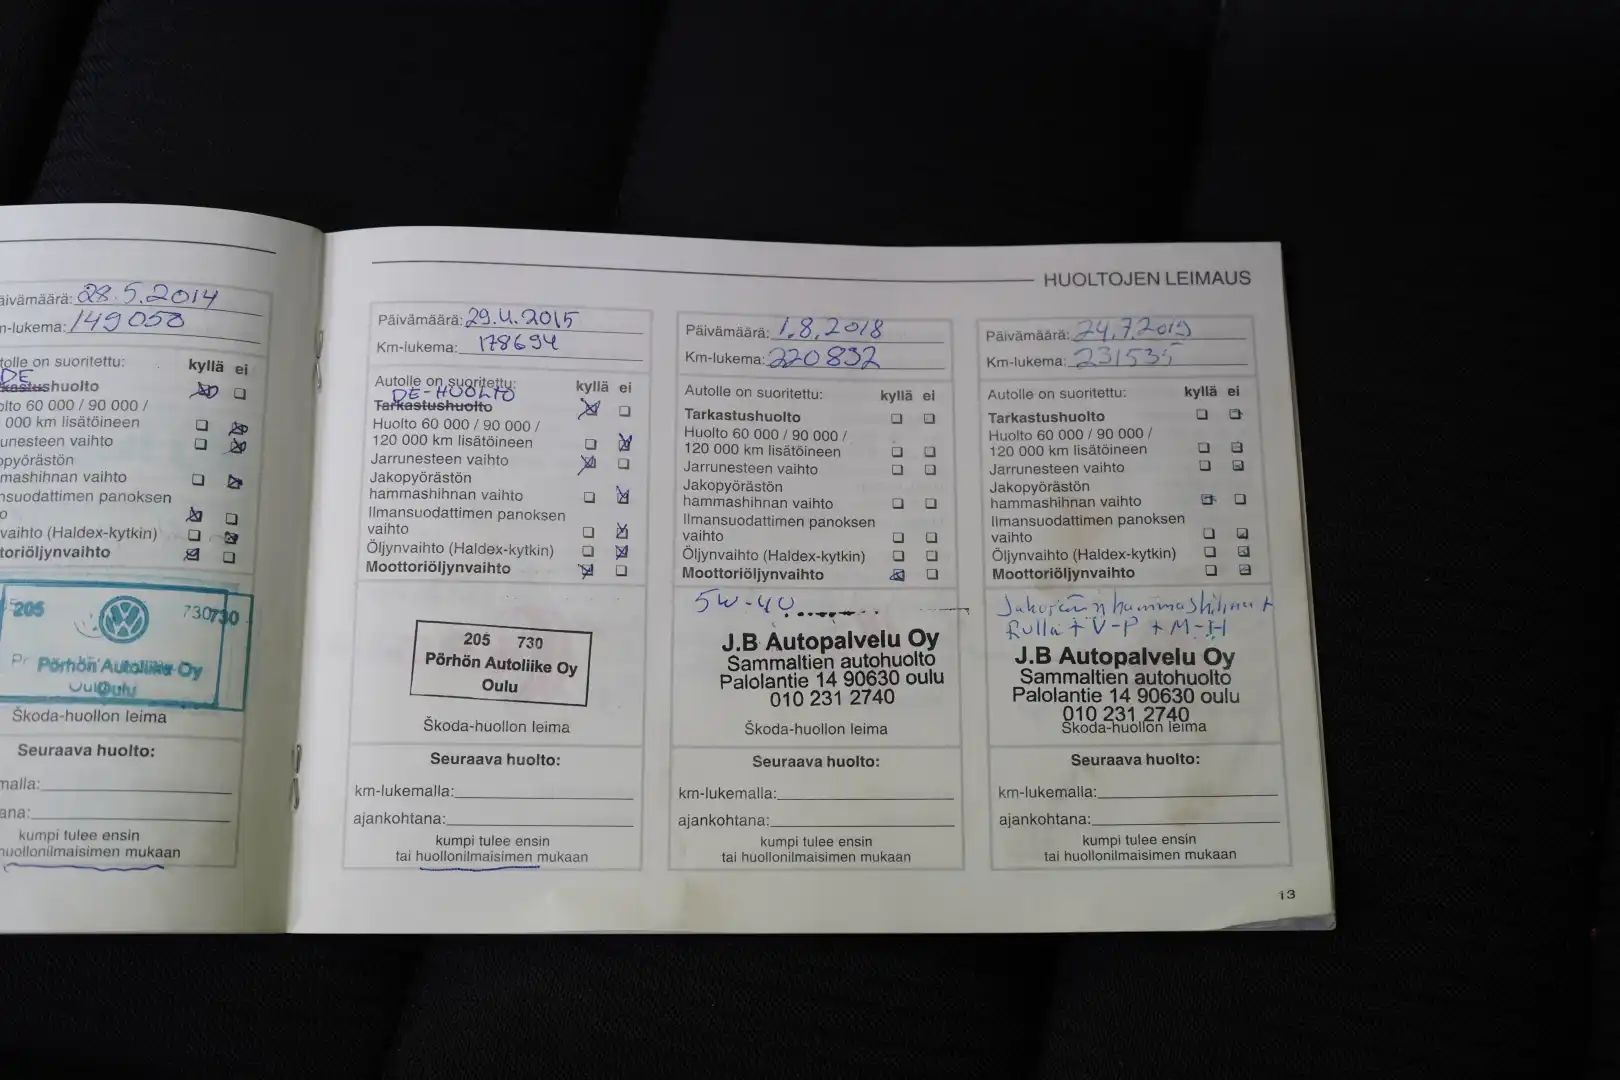 HUOLTOJEN LEIMAUS
äivämäärä: 28.5.2014
n-lukema: 149050
tolle on suoritettu:
kyllä ei
DE
kastushuolto
olto 60 000 / 90 000 /
000 km lisätöineen
runesteen vaihto
opyörästön
mmashihnan vaihto
nsuodattimen panoksen
o
vaihto (Haldex-kytkin)
toriöljynvaihto
205 730730
Pörhön Autoliike Oy
Oulu
Škoda-huollon leima
Seuraava huolto:
malla:
ana:
kumpi tulee ensin
huollonilmaisimen mukaan
Päivämäärä: 29.4.2015
Km-lukema: 178694
Autolle on suoritettu:
kyllä ei
DE-HUOLTO
Tarkastushuolto
Huolto 60 000 / 90 000 /
120 000 km lisätöineen
Jarrunesteen vaihto
Jakopyörästön
hammashihnan vaihto
Ilmansuodattimen panoksen
vaihto
Öljynvaihto (Haldex-kytkin)
Moottoriöljynvaihto
205 730
Pörhön Autoliike Oy
Oulu
Škoda-huollon leima
Seuraava huolto:
km-lukemalla:
ajankohtana:
kumpi tulee ensin
tai huollonilmaisimen mukaan
Päivämäärä: 1.8.2018
Km-lukema: 220832
Autolle on suoritettu:
kyllä ei
Tarkastushuolto
Huolto 60 000 / 90 000 /
120 000 km lisätöineen
Jarrunesteen vaihto
Jakopyörästön
hammashihnan vaihto
Ilmansuodattimen panoksen
vaihto
Öljynvaihto (Haldex-kytkin)
Moottoriöljynvaihto
5W-40
J.B Autopalvelu Oy
Sammaltien autohuolto
Palolantie 14 90630 oulu
010 231 2740
Škoda-huollon leima
Seuraava huolto:
km-lukemalla:
ajankohtana:
kumpi tulee ensin
tai huollonilmaisimen mukaan
Päivämäärä: 24.7.2019
Km-lukema: 231535
Autolle on suoritettu:
kyllä ei
Tarkastushuolto
Huolto 60 000 / 90 000 /
120 000 km lisätöineen
Jarrunesteen vaihto
Jakopyörästön
hammashihnan vaihto
Ilmansuodattimen panoksen
vaihto
Öljynvaihto (Haldex-kytkin)
Moottoriöljynvaihto
hammashihna +
Rulla + V-P + M-H
J.B Autopalvelu Oy
Sammaltien autohuolto
Palolantie 14 90630 oulu
010 231 2740
Škoda-huollon leima
Seuraava huolto:
km-lukemalla:
ajankohtana:
kumpi tulee ensin
tai huollonilmaisimen mukaan
13